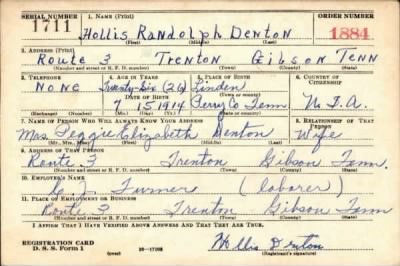 SERIAL NUMBER 1. NAME (Print) ORDER NUMBER
1711 Hollis Randolph Denton 1884
(First) (Middle) (Last)
2. ADDRESS (Print)
Route 3 Trenton Gibson Tenn
(Number and street or R. F. D. number) (Town) (County) (State)
3. TELEPHONE 4. AGE IN YEARS 5. PLACE OF BIRTH 6. COUNTRY OF CITIZENSHIP
None Twenty-Six (26) Linden
DATE OF BIRTH
7 15 1914 Perry Co Tenn. U.S.A.
(Mo.) (Day) (Yr.)
7. NAME OF PERSON WHO WILL ALWAYS KNOW YOUR ADDRESS 8. RELATIONSHIP OF THAT PERSON
Mrs. Peggie Elizabeth Denton Wife
(Mr., Mrs., Miss) (First) (Middle) (Last)
9. ADDRESS OF THAT PERSON
Route 3 Trenton Gibson Tenn.
(Number and street or R. F. D. number) (Town) (County) (State)
10. EMPLOYER'S NAME
Turner (laborer)
11. PLACE OF EMPLOYMENT OR BUSINESS
Route 3 Trenton Gibson Tenn
(Number and street or R. F. D. number) (Town) (County) (State)
I AFFIRM THAT I HAVE VERIFIED ABOVE ANSWERS AND THAT THEY ARE TRUE.
REGISTRATION CARD
D. S. S. Form 1 (over) Hollis Denton
(Registrant's signature)